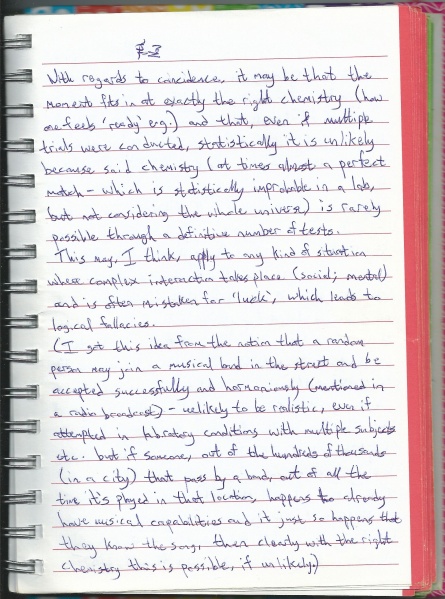 With regards to coincidence, it may be that the
moment fits in at exactly the right chemistry (how
one feels 'ready' e.g.) and that, even if multiple
trials were conducted, statistically it is unlikely
because said chemistry (at times almost a perfect
match - which is statistically improbable in a lab,
but not considering the whole universe) is rarely
possible through a definitive number of tests.
This may, I think, apply to any kind of situation
where complex interaction takes place (social; mental)
and is often mistaken for 'luck', which leads to
logical fallacies.
(I got this idea from the notion that a random
person may join a musical band in the street and be
accepted successfully and harmoniously (mentioned in
a radio broadcast) - unlikely to be realistic, even if
attempted in labratory conditions with multiple subjects
etc. but if someone, out of the hundreds of thousands
(in a city) that pass by a band, out of all the
time it's played in that location, happens to already
have musical capabalities and it just so happens that
they know the song, then clearly with the right
chemistry this is possible, if unlikely.)